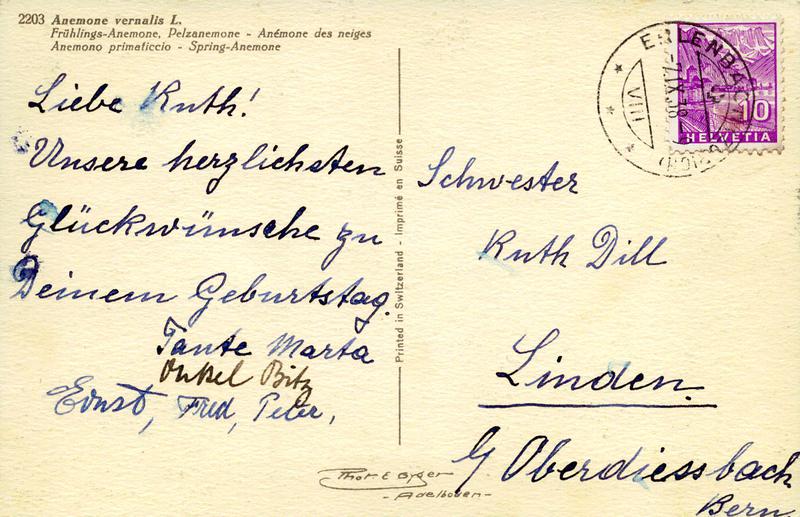 2203 Anemone vernalis L.
Frühlings-Anemone, Pelzanemone - Anémone des neiges
Anemono primaticcio - Spring-Anemone
Liebe Ruth!
Unsere herzlichsten
Glückwünsche zu
Deinem Geburtstag.
Tante Marta
Onkel Bitz
Ernst, Fred, Peter,
Printed in Switzerland - Imprimé en Suisse
ERLENBACH
VIII
10
HELVETIA
Schwester
Ruth Dill
Linden.
Oberdiessbach
Bern.
Phot. E. Gyger
- Adelboden -